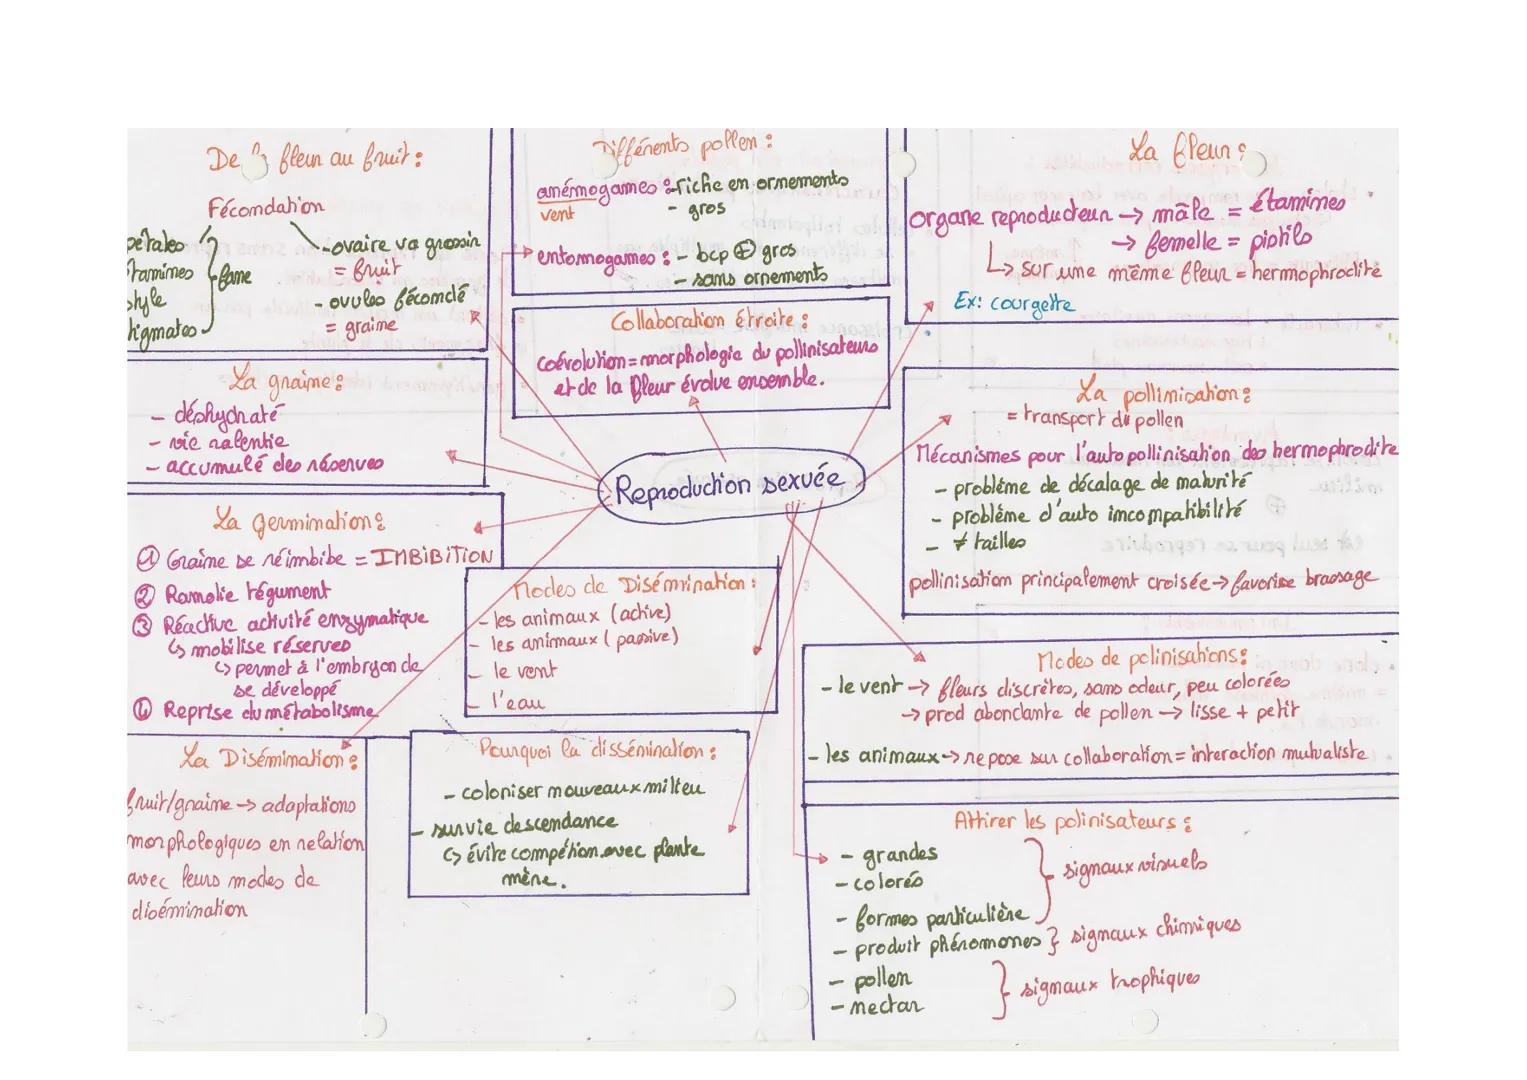 De la fleur au fruit :
Fécondation
pétales
étamines
style
stigmates
fane
- ovaire va grossir
= fruit
- ovules fécondé
= graine
Différents pollen :
anémogames : - riche en ornements
vent
- gros
entomogames : - bcp ⊕ gros
- sans ornements
La fleur :
organe reproducteur → mâle = étamines
→ femelle = pistils
↳ sur une même fleur = hermophrodite
Ex: courgette
Collaboration étroite :
coévolution = morphologie du pollinisateurs
et de la fleur évolue ensemble.
La graine :
- déshydraté
- vie ralentie
- accumulé des réserves
La pollinisation :
= transport du pollen
Mécanismes pour l'auto pollinisation des hermophrodite
- problème de décalage de maturité
- problème d'auto incompatibilité
- ≠ tailles
pollinisation principalement croisée → favorise brassage
Reproduction sexuée
La germination :
① Graine se réimbibe = IMBIBITION
② Ramolie tégument
③ Réactive activité enzymatique
↳ mobilise réserves
↳ permet à l'embryon de
se développé
④ Reprise du métabolisme
Modes de Disémination :
- les animaux (active)
- les animaux (passive)
- le vent
- l'eau
Modes de polinisations :
- le vent → fleurs discrètes, sans odeur, peu colorées
→ prod abondante de pollen → lisse + petit
- les animaux → repose sur collaboration = interaction mutualiste
La Disémination :
fruit/graine → adaptations
morphologiques en relation
avec leurs modes de
disémination
Pourquoi la dissémination :
- coloniser nouveaux milieu
- survie descendance
↳ évite compétion avec plante
mère.
Attirer les polinisateurs :
- grandes
- colorés
- formes particulière
signaux visuels
- produit phéromones } signaux chimiques
- pollen
- nectar
signaux trophiques